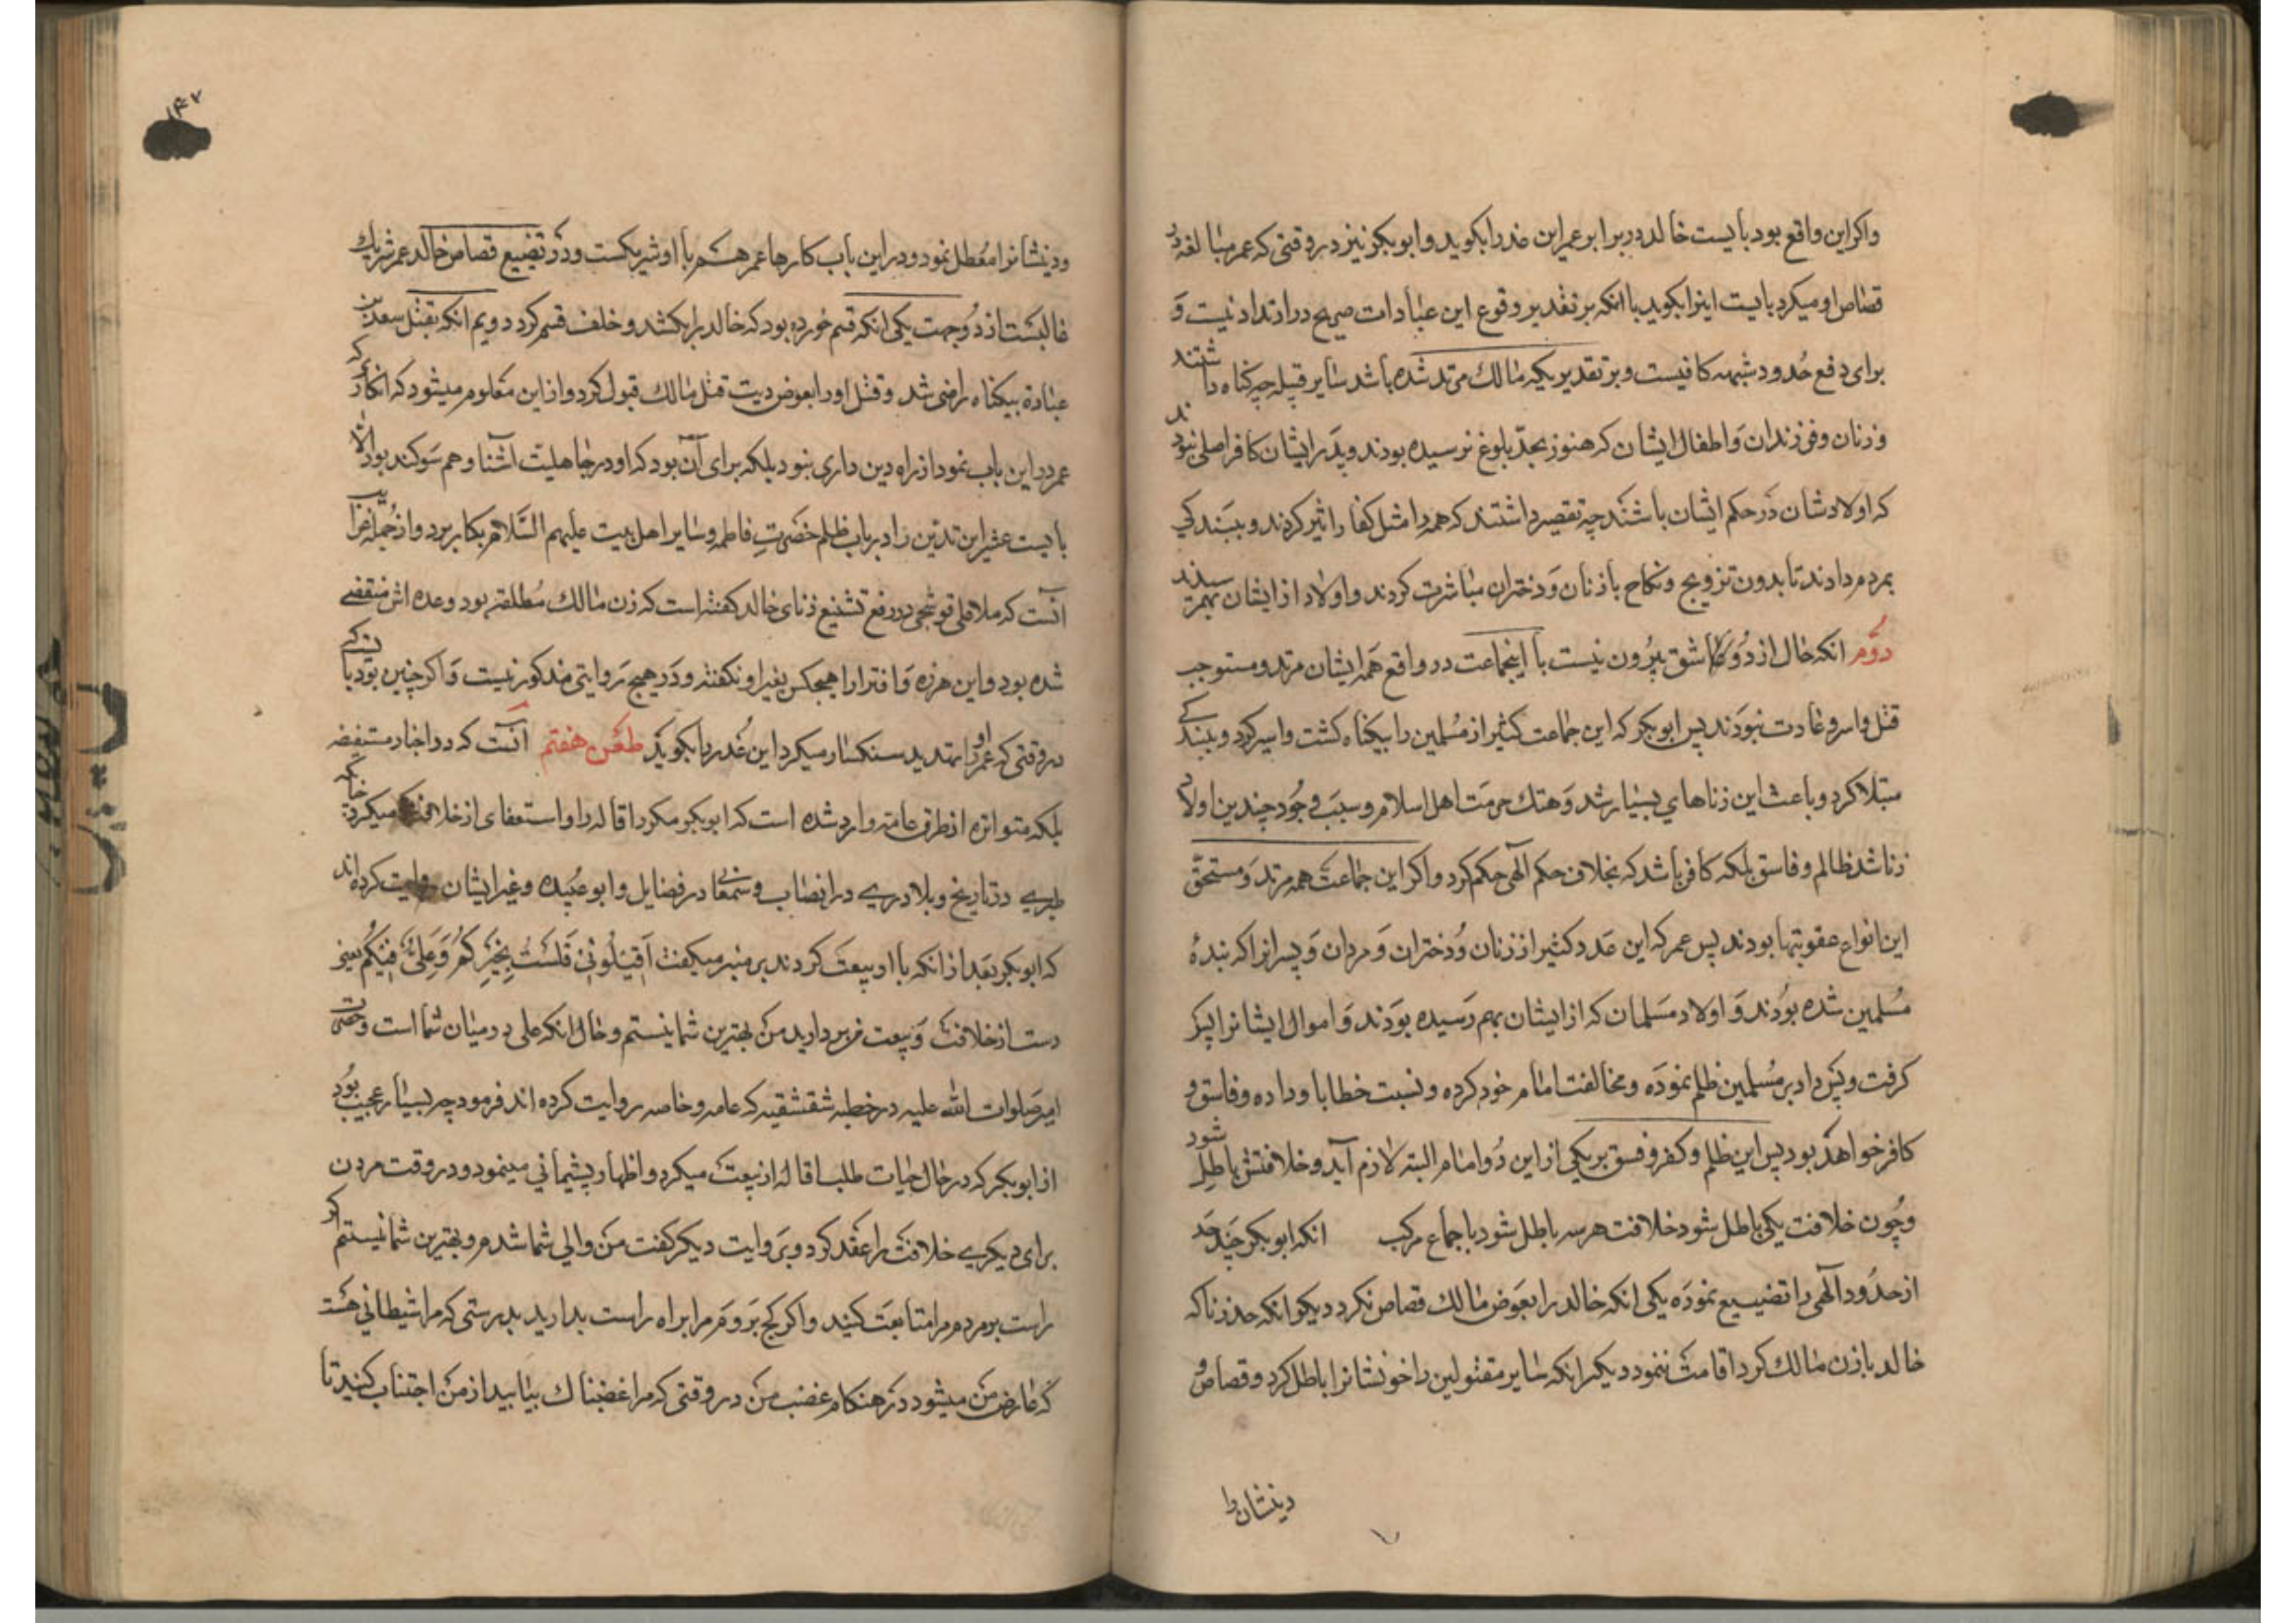 واکر این واقع بود بایست خالد در برابر عمر این عذر را بکوید و ابوبکر نیز در وقتی که عمر مبالغه در
قصاص او میکرد بایست اینرا بکوید با انکه بر تقدیر وقوع این عبارات صریح در ارتداد نیست و
برای دفع حدود شبهه کافیست و بر تقدیر یکه مالک مرتد شده باشد سایر قبیله چه کناه داشتند
و زنان و فرزندان و اطفال ایشان که هنوز بحدّ بلوغ نرسیده بودند و پدر ایشان کافر اصلی نبودند
که اولادشان در حکم ایشان باشند چه تقصیر داشتند که همه را مثل کفار اثیر کردند و ببندکی
بمردم دادند تا بدون تزویج و نکاح با زنان و دختران مباشرت کردند و اولاد از ایشان بهم رسیدند
دوّم انکه خال از دو شق بیرون نیست یا اینجماعت در واقع همه ایشان مرتد و مستوجب
قتل و اسر و غارت نبودند پس ابوبکر که این جماعت کثیر از مسلمین را بیکناه کشت و اسیر کرد و ببندکی
مبتلا کرد و باعث این زناهای بسیار شد و هتک حرمت اهل اسلام و سبب وجود چندین اولاد
زنا شد ظالم و فاسق بلکه کافر باشد که بخلاف حکم آلهی حکم کرد و اکر این جماعت همه مرتد و مستحقّ
این انواع عقوبتها بودند پس عمر که این عدد کثیر از زنان و دختران و مردان و پسرانرا که بندهٔ
مسلمین شده بودند و اولاد مسلمان که از ایشان بهم رسیده بودند و اموال ایشانرا پس
کرفت و پس داد بر مسلمین ظلم نموده و مخالفت امام خود کرده و نسبت خطا باو داده و فاسق و
کافر خواهد بود پس این ظلم و کفر و فسق بر یکی از این دو امام البته لازم آید و خلافتش باطل شود
و چون خلافت یکی باطل شود خلافت هر سه باطل شود باجماع مرکب انکه ابوبکر چند حد
از حدود آلهی را تضییع نموده یکی انکه خالد را بعوض مالک قصاص نکرد دیکر انکه حد زنا که
خالد با زن مالک کرد اقامت ننمود دیکر انکه سایر مقتولین را خونشانرا باطل کرد و قصاص و
دیتشان را
۱۴۷
و دیتشانرا معطل نمود و در این باب کارها عمر هم با او شریکست و در تضییع قصاص خالد عمر شریک
غالبست از دو جهت یکی انکه قسم خورده بود که خالد را بکشد و خلف قسم کرد دویم انکه بقتل سعد بن
عبادة بیکناه راضی شد و قتل او را بعوض دیت قتل مالک قبول کرد و از این معلوم میشود که انکار که
عمر در این باب نمود از راه دین داری نبود بلکه برای آن بود که او در جاهلیت آشنا و هم سوکند بود والا
بایست عشر این تدین را در باب ظلم حضرت فاطمه و سایر اهل بیت علیهم السّلام بکار برد و از جمله غرایب
انست که ملا علی قوشجی در دفع تشنیع زنای خالد کفته است که زن مالک مطلقه بود و عده اش منقضی
شده بود و این هرزه و افترا را هیچکس بغیر او نکفته و در هیچ روایتی مذکور نیست و اکر چنین بود بایست که
در وقتی که عمر او را تهدید سنکسار میکرد این عذر را بکوید طعن هفتم آنست که در اخبار مستفیضه
بلکه متواتره از طرق عامه وارد شده است که ابوبکر مکرر اقاله را و استعفای از خلافت میکرد چنانکه
طبری در تاریخ و بلادری در انساب و سمعانی در فضایل و ابو عبیده و غیر ایشان روایت کرده اند
که ابوبکر بعد از انکه با او بیعت کردند بر منبر میکفت اَقیلُونی فَلَستُ بِخَیرِکُم وَ عَلِیٌّ فیکُم یعنی
دست از خلافت و بیعت من بردارید من بهترین شما نیستم و حال انکه علی در میان شما است و حضرت
امیر صلوات الله علیه در خطبه شقشقیه که عامه و خاصه روایت کرده اند فرمود چه بسیار عجیب بود
از ابوبکر که در حال حیات طلب اقاله از بیعت میکرد و اظهار پشیمانی مینمود و در وقت مردن
برای دیکری خلافت را عقد کرد و بروایت دیکر کفت من والی شما شدم و بهترین شما نیستم اکر
راست بروم مرا متابعت کنید و اکر کج بروم مرا براه راست بدارید بدرستی که مرا شیطانی هست
که عارض من میشود در هنکام غضب من در وقتی که مرا غضبناک بیابید از من اجتناب کنید تا